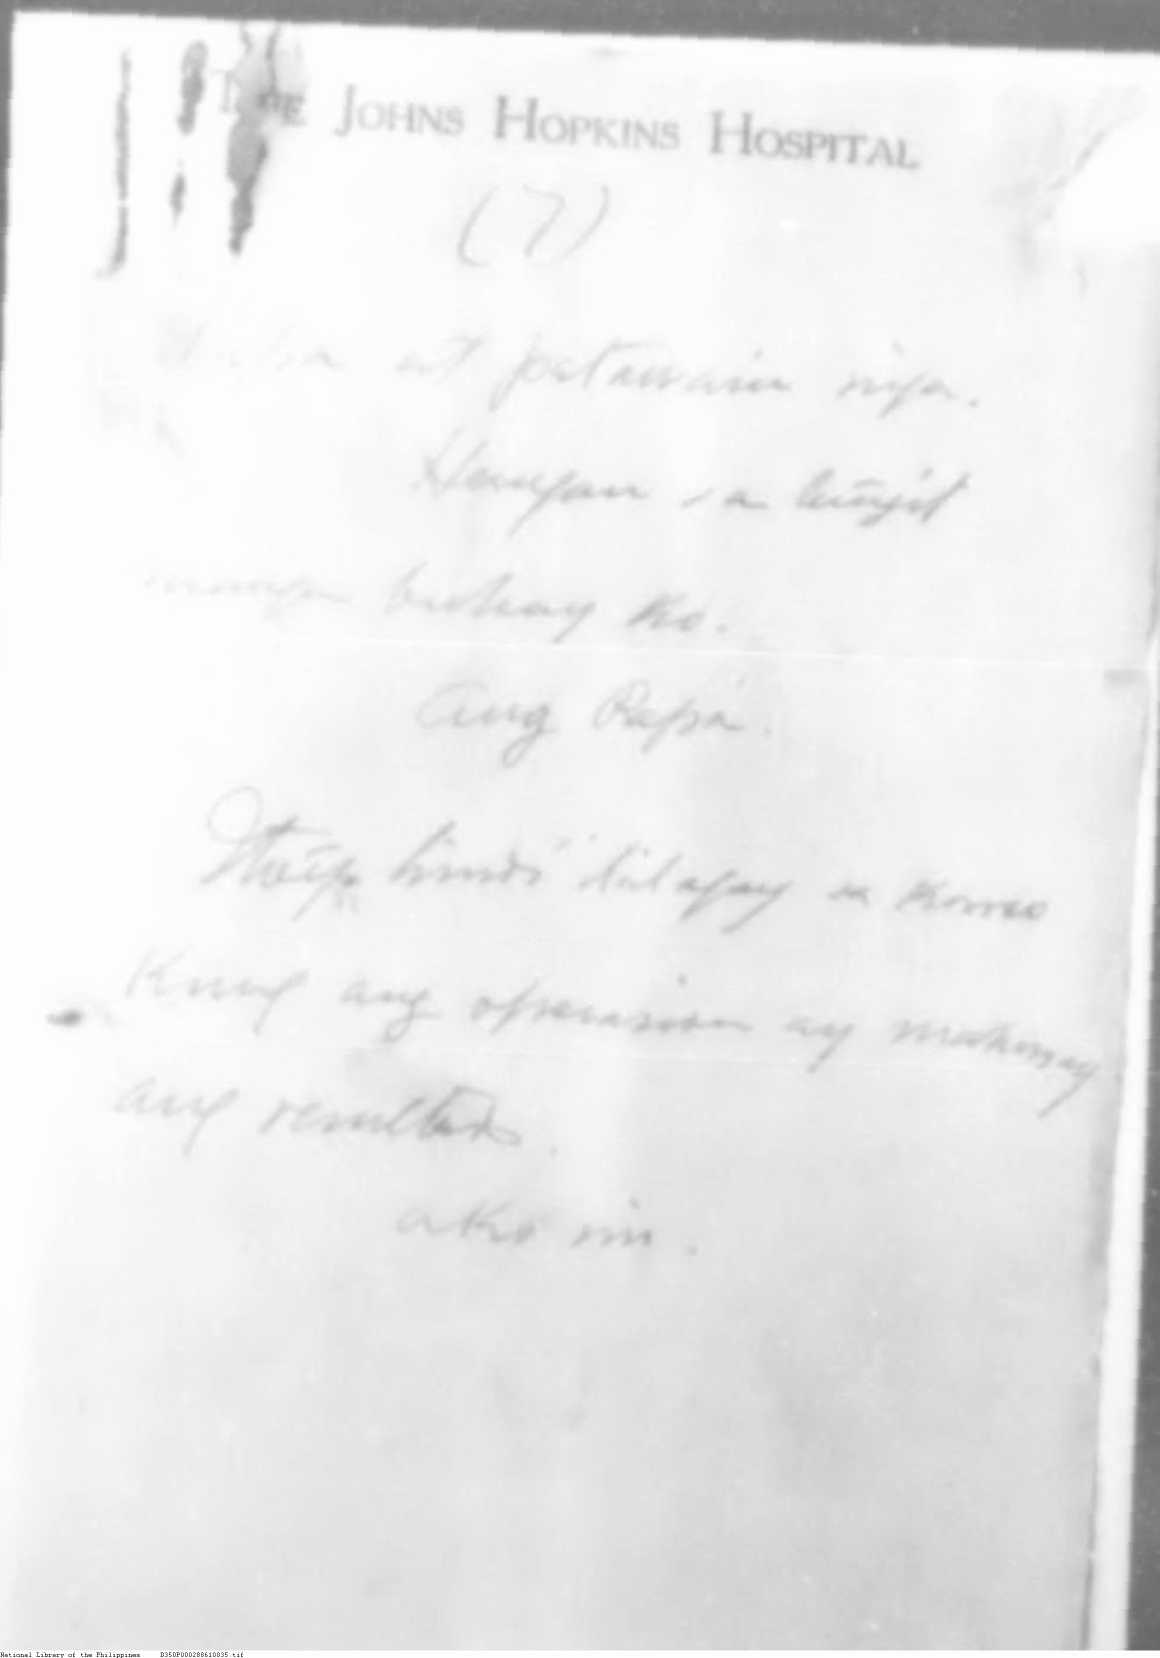 THE JOHNS HOPKINS HOSPITAL
(7)
at patawarin niya.
sa langit
buhay ko.
Ang Papá.
hindi ilalagay sa Korreo
Kung ang operasion ay
ang resultado.
ako rin.
National Library of the Philippines D350P000288610035.tif